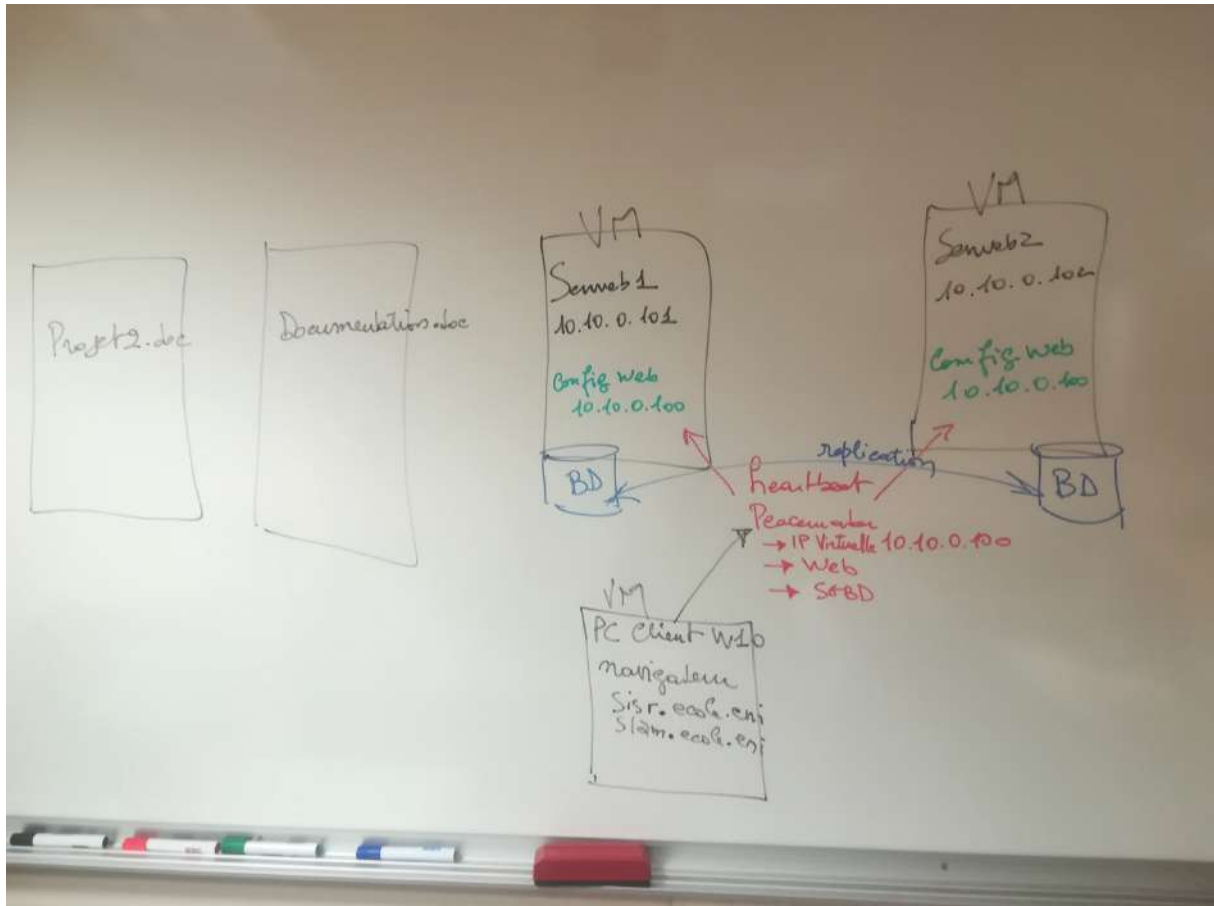 Projet2.doc
Documentation.doc
VM
Serweb1
10.10.0.101
Config web
10.10.0.100
BD
VM
Serweb2
10.10.0.102
Config web
10.10.0.100
BD
replication
heartbeat
Peacemaker
→ IP Virtuelle 10.10.0.100
→ Web
→ SGBD
VM
PC Client W10
navigateur
Sisr.ecole.eni
Slam.ecole.eni